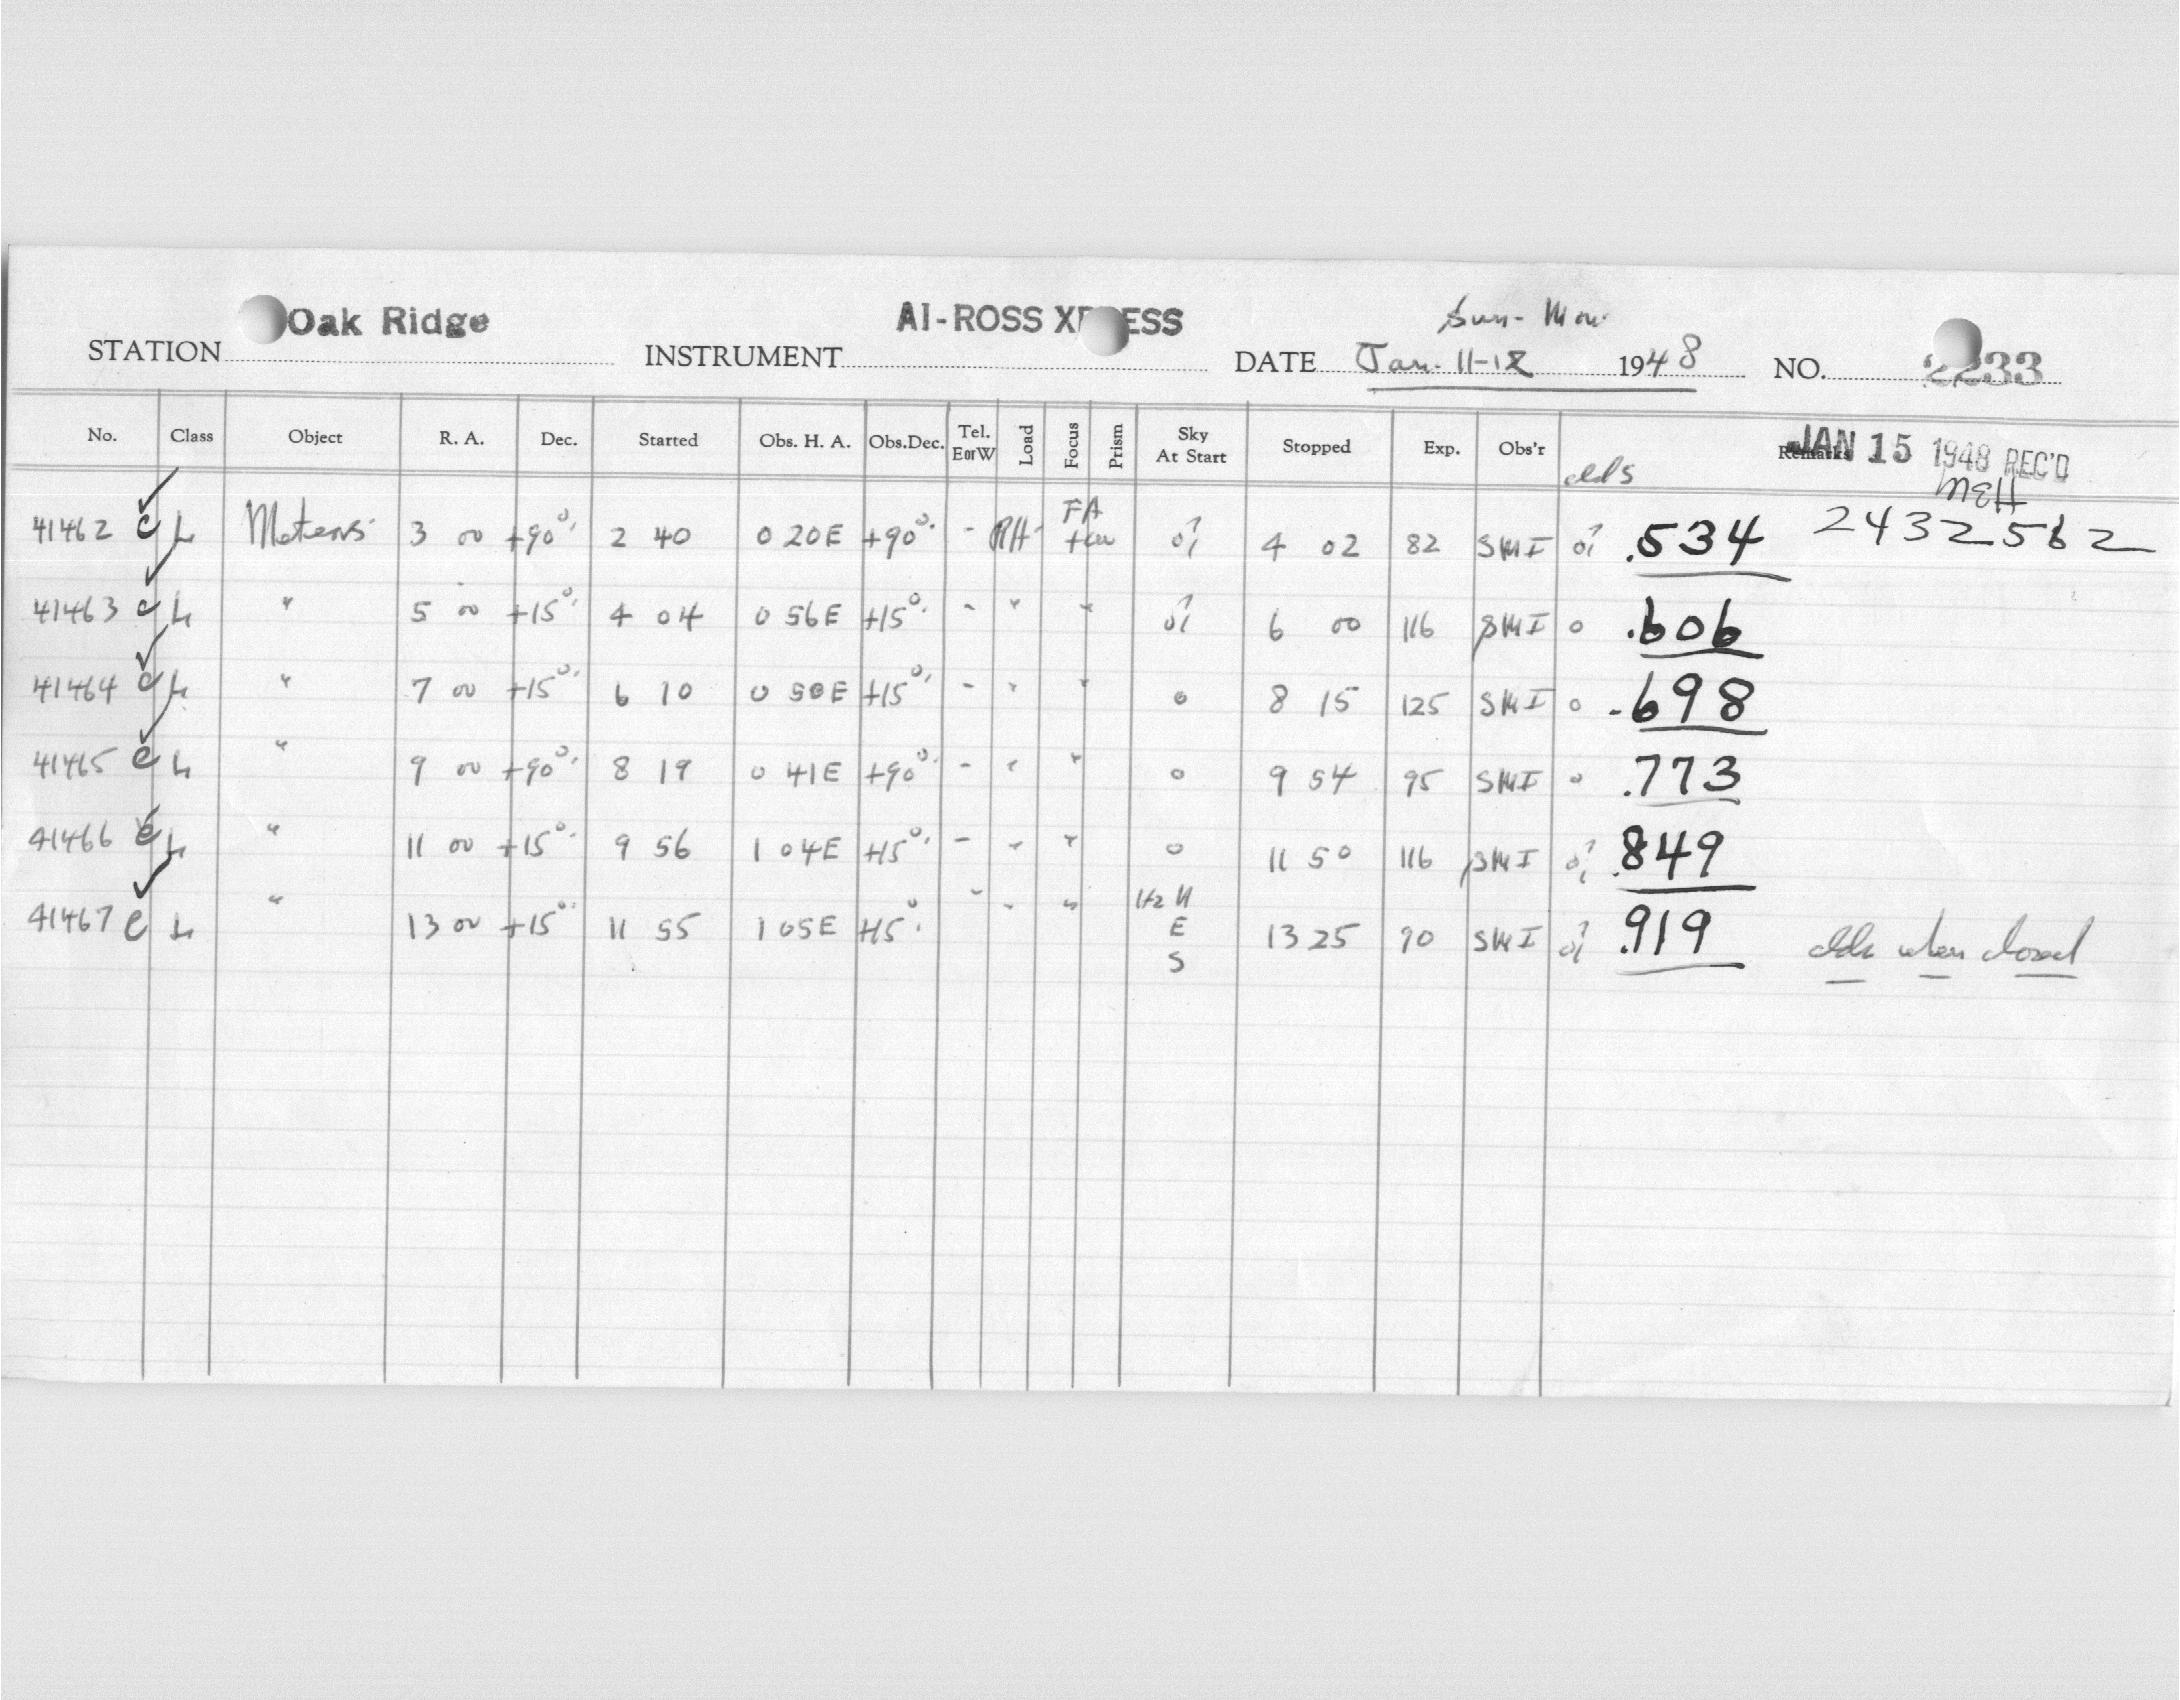 Oak Ridge AI-ROSS XPRESS Sun - Mon
STATION INSTRUMENT DATE Jan. 11-12 1948 NO. 2233
No. Class Object R. A. Dec. Started Obs. H. A. Obs.Dec. Tel. EorW Load Focus Prism Sky At Start Stopped Exp. Obs'r clds Remarks JAN 15 1948 REC'D
MEH
41462 C L Meteors 3 00 +90° 2 40 0 20E +90° - RH FA 4 02 82 SMI .534 2432562
41463 C L " 5 00 +15° 4 04 0 56E +15° - " " 6 00 116 SMI 0 .606
41464 C L " 7 00 +15° 6 10 0 50E +15° - " " 0 8 15 125 SMI 0 .698
41465 C L " 9 00 +90° 8 19 0 41E +90° - " " 0 9 54 95 SMI 0 .773
41466 C L " 11 00 +15° 9 56 1 04E +15° - " " 0 11 50 116 SMI .849
41467 C L " 13 00 +15° 11 55 1 05E +15° " " " Hz N E S 13 25 90 SMI .919 clds when closed